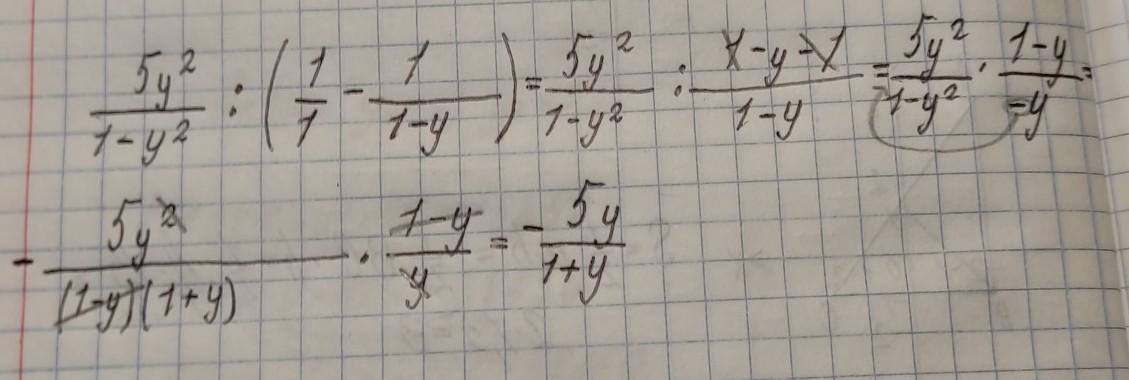 5y²/(1-y²) : (1/1 - 1/(1-y)) = 5y²/(1-y²) : (1-y-1)/(1-y) = 5y²/(1-y²) · (1-y)/(-y) =
- 5y²/((1-y)(1+y)) · (1-y)/y = - 5y/(1+y)